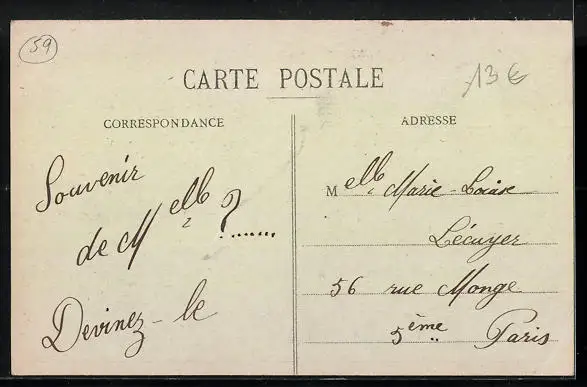 59
CARTE POSTALE
13 €
CORRESPONDANCE
ADRESSE
Souvenir
de Melle ?......
Devinez-le
Melle Marie-Louise
Lécuyer
56 rue Monge
5ème Paris